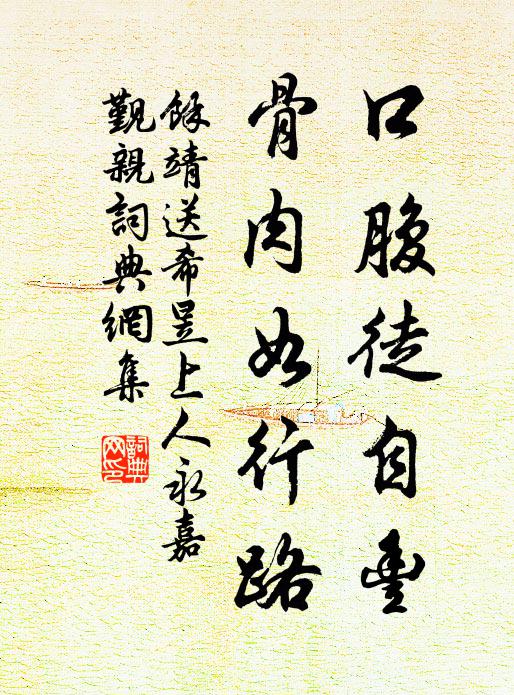 口腹徒自豊
骨肉如行路
餘靖送希昱上人永嘉
覲親詞典網集
詞典
网印